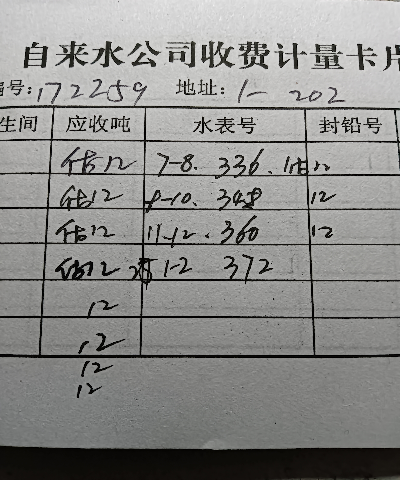 自来水公司收费计量卡片
编号:172259 地址:1-202
生间 应收吨 水表号 封铅号
估12 7-8. 336. 12
估12 9-10. 348 12
估12 11-12. 360 12
估12 25 1-2 372
12
12
12
12